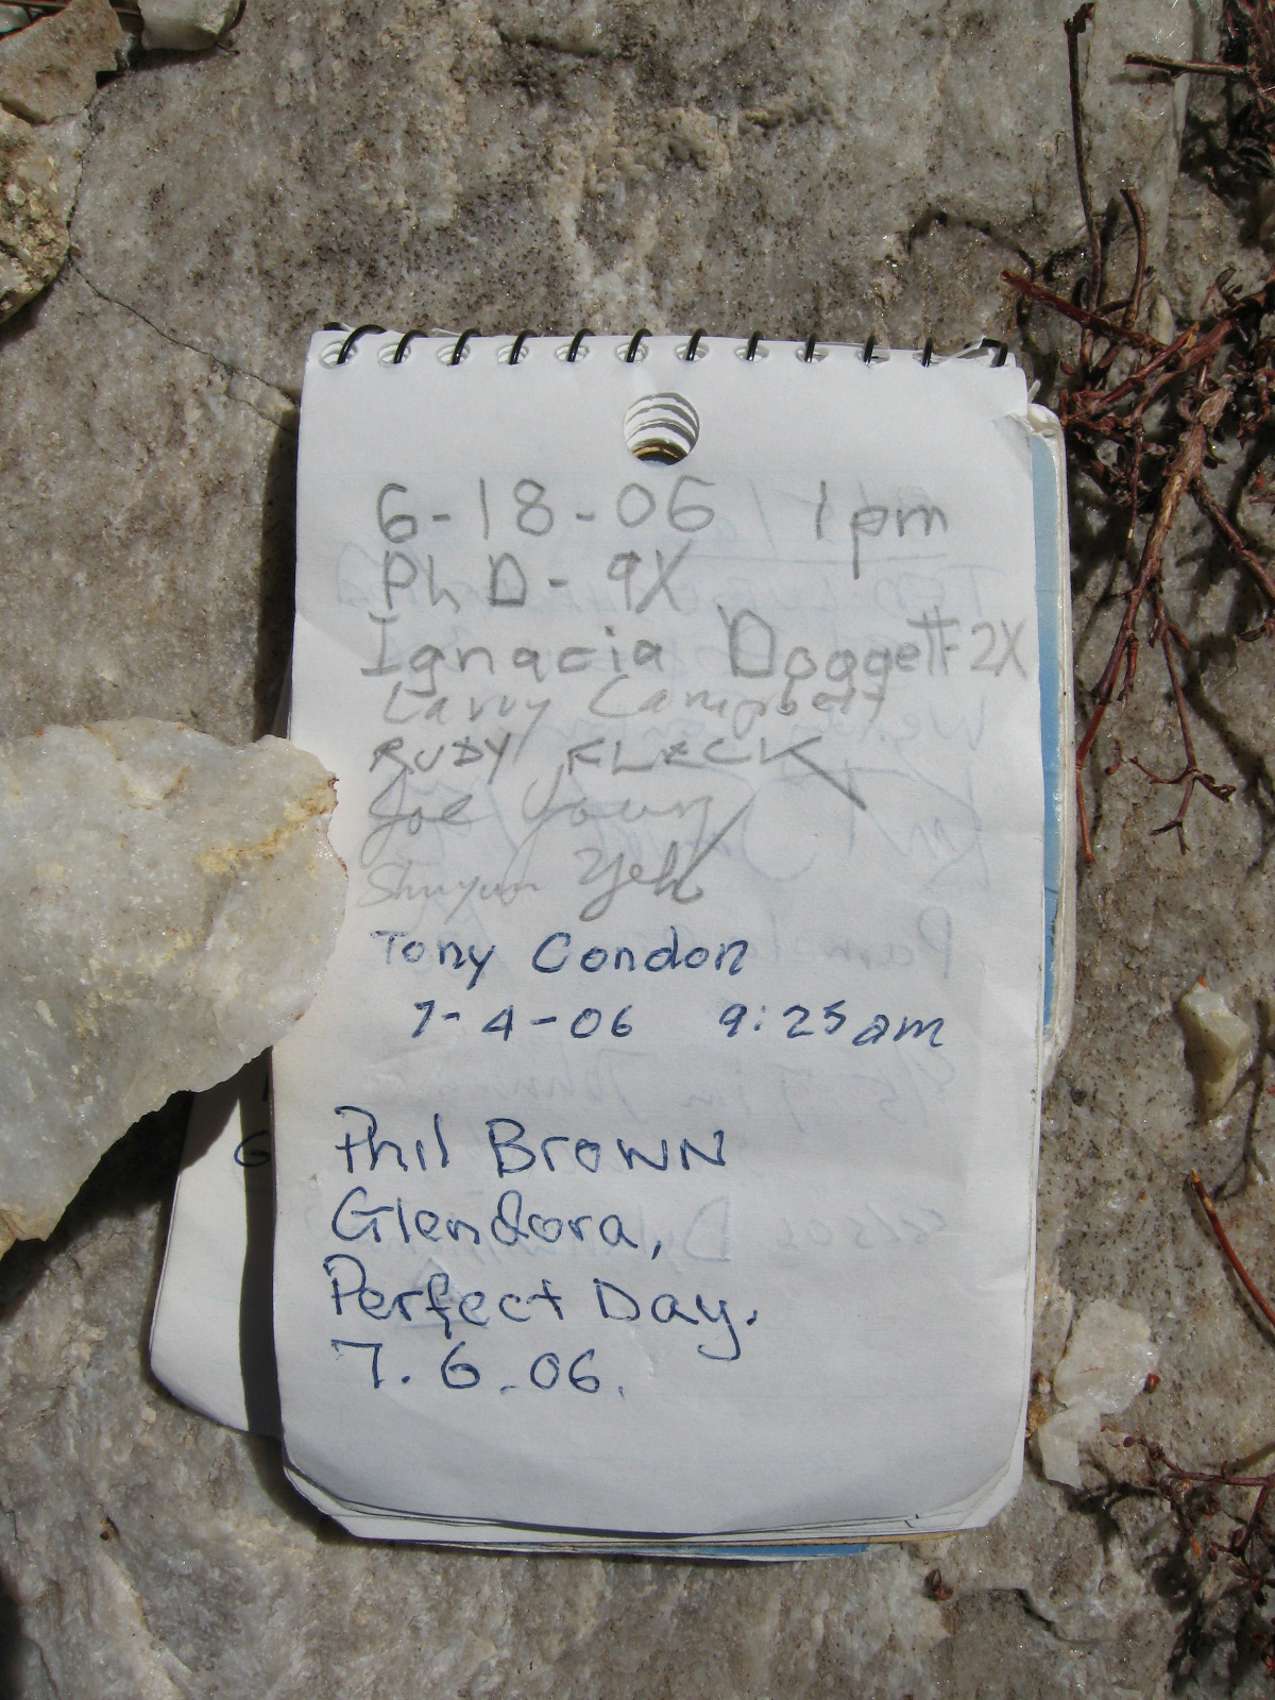 6-18-06 1pm
PhD - 9X
Ignacia Doggett 2X
Larry Campbell
RUDY FLECK
Joe Young
Shuyun Yeh
Tony Condon
7-4-06 9:25am
Phil Brown
Glendora,
Perfect Day.
7.6.06.